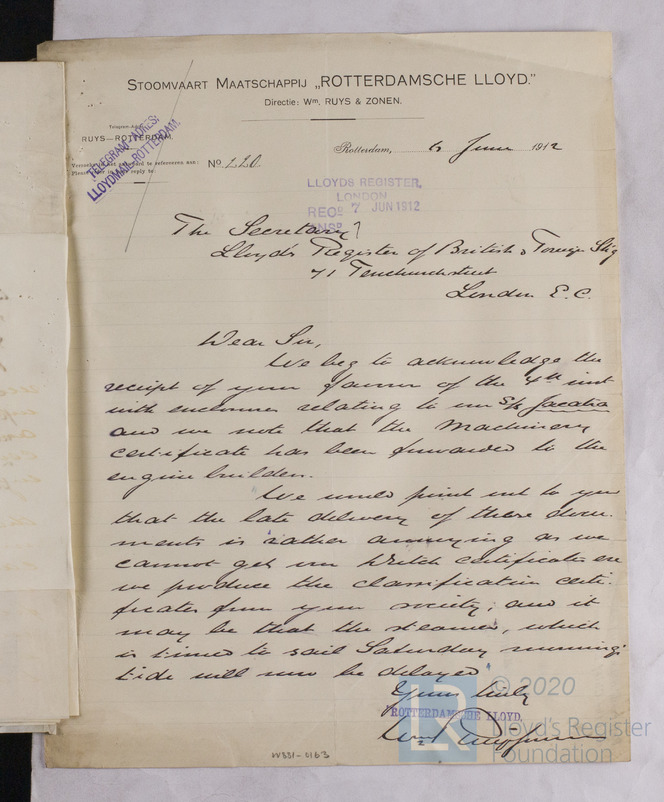 STOOMVAART MAATSCHAPPIJ „ROTTERDAMSCHE LLOYD."
Directie: Wm. RUYS & ZONEN.
Telegram-Adres:
RUYS—ROTTERDAM.
TELEGRAM-ADRES:
LLOYDMAIL-ROTTERDAM.
No LLO.
Rotterdam, 6 June 1912
LLOYDS REGISTER,
LONDON
RECD 7 JUN 1912
The Secretary
Lloyd's Register of British & Foreign Shig
71 Fenchurchstreet
London E.C.
Dear Sir,
We beg to acknowledge the
receipt of your favour of the 4th inst
with enclosures relating to our S/s Jacatra
and we note that the Machinery
certificate has been forwarded to the
engine builders.
We would point out to you
that the late delivery of these docu-
ments is rather annoying as we
cannot get our Dutch certificates ere
we produce the classification certi-
ficates from your society; and it
may be that the steamer, which
is timed to sail Saturday morning's
tide will now be delayed
Yours truly
ROTTERDAMSCHE LLOYD.
W331-0163
© 2020
LR
Lloyd's Register
Foundation